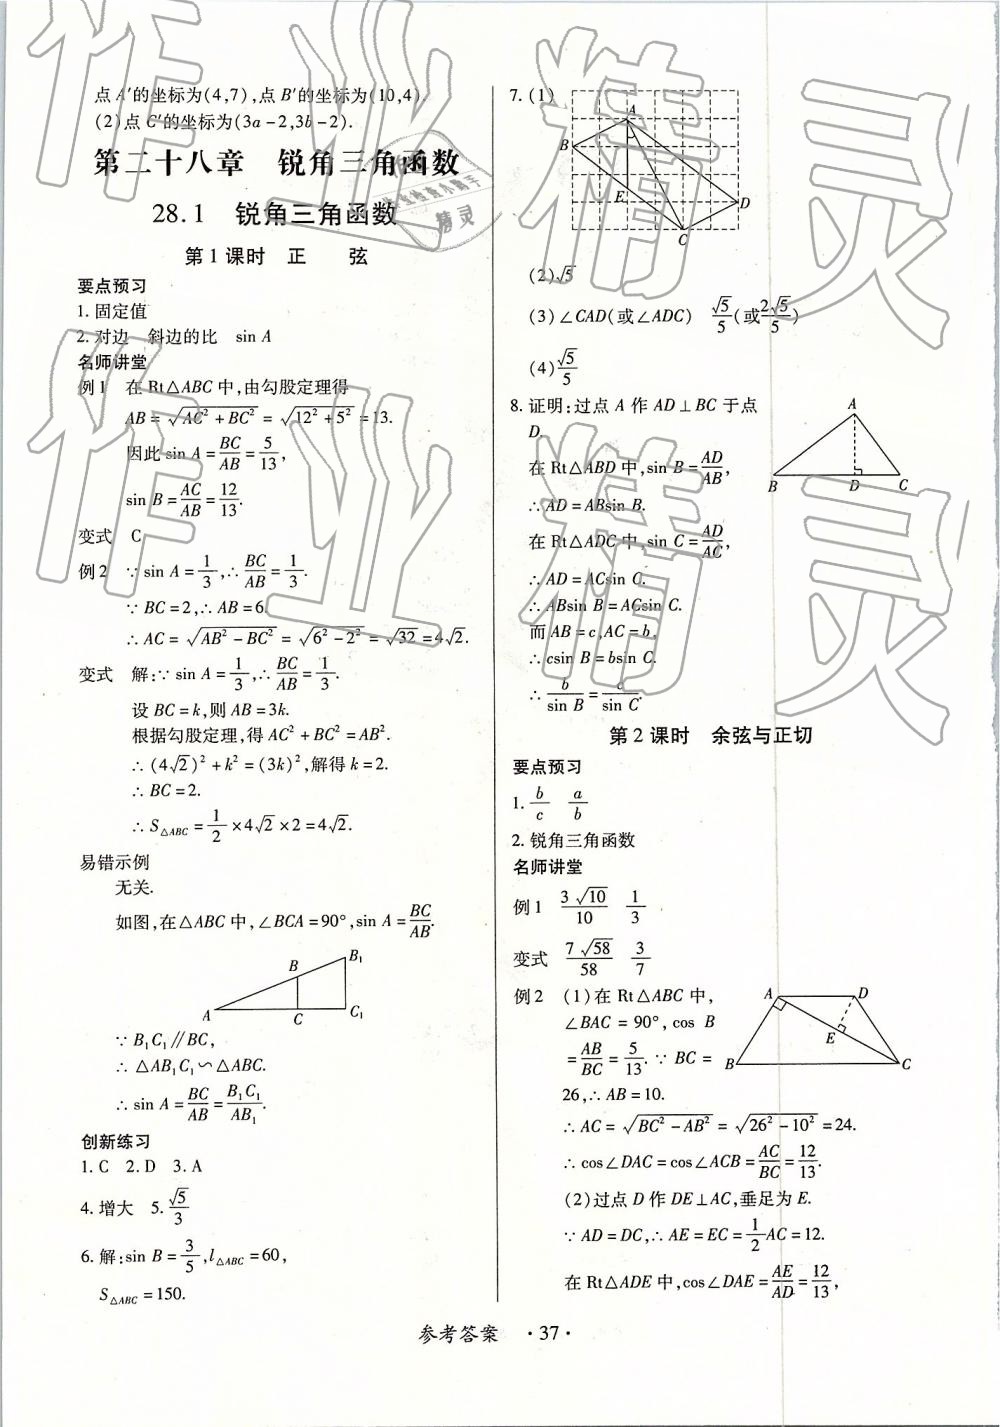 点 A′的坐标为(4,7),点 B′的坐标为(10,4).
(2)点 C′的坐标为(3a-2,3b-2).
第二十八章 锐角三角函数
28.1 锐角三角函数
第1课时 正 弦
要点预习
1. 固定值
2. 对边 斜边的比 sin A
名师讲堂
例1 在 Rt△ABC 中,由勾股定理得
AB=√(AC²+BC²)=√(12²+5²)=13.
因此 sin A=BC/AB=5/13,
sin B=AC/AB=12/13.
变式 C
例2 ∵sin A=1/3,∴BC/AB=1/3.
∵BC=2,∴AB=6.
∴AC=√(AB²-BC²)=√(6²-2²)=√32=4√2.
变式 解:∵sin A=1/3,∴BC/AB=1/3.
设 BC=k,则 AB=3k.
根据勾股定理,得 AC²+BC²=AB².
∴(4√2)²+k²=(3k)²,解得 k=2.
∴BC=2.
∴S△ABC=1/2×4√2×2=4√2.
易错示例
无关.
如图,在△ABC 中,∠BCA=90°,sin A=BC/AB.
A B C B₁ C₁
∵B₁C₁∥BC,
∴△AB₁C₁∽△ABC.
∴sin A=BC/AB=B₁C₁/AB₁.
创新练习
1. C 2. D 3. A
4. 增大 5. √5/3
6. 解:sin B=3/5,l△ABC=60,
S△ABC=150.
7. (1)
A B E C D
(2)√5
(3)∠CAD(或∠ADC) √5/5(或2√5/5)
(4)√5/5
8. 证明:过点 A 作 AD⊥BC 于点
D.
A B D C
在 Rt△ABD 中,sin B=AD/AB,
∴AD=ABsin B.
在 Rt△ADC 中,sin C=AD/AC,
∴AD=ACsin C.
∴ABsin B=ACsin C.
而 AB=c,AC=b,
∴csin B=bsin C.
∴b/sin B=c/sin C.
第2课时 余弦与正切
要点预习
1. b/c a/b
2. 锐角三角函数
名师讲堂
例1 3√10/10 1/3
变式 7√58/58 3/7
例2 (1)在 Rt△ABC 中,
∠BAC=90°,cos B
=AB/BC=5/13.∵BC=
26,∴AB=10.
A D E B C
∴AC=√(BC²-AB²)=√(26²-10²)=24.
∴cos∠DAC=cos∠ACB=AC/BC=12/13.
(2)过点 D 作 DE⊥AC,垂足为 E.
∵AD=DC,∴AE=EC=1/2AC=12.
在 Rt△ADE 中,cos∠DAE=AE/AD=12/13,
参考答案 ·37·
作业精灵
作业精灵
精灵